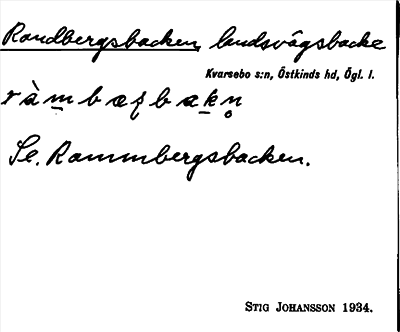 Randbergsbacken, landsvägsbacke
Kvarsebo s:n, Östkinds hd, Ögl. l.
ràmbæʃbakn̥
Se. Rammbergsbacken.
STIG JOHANSSON 1934.